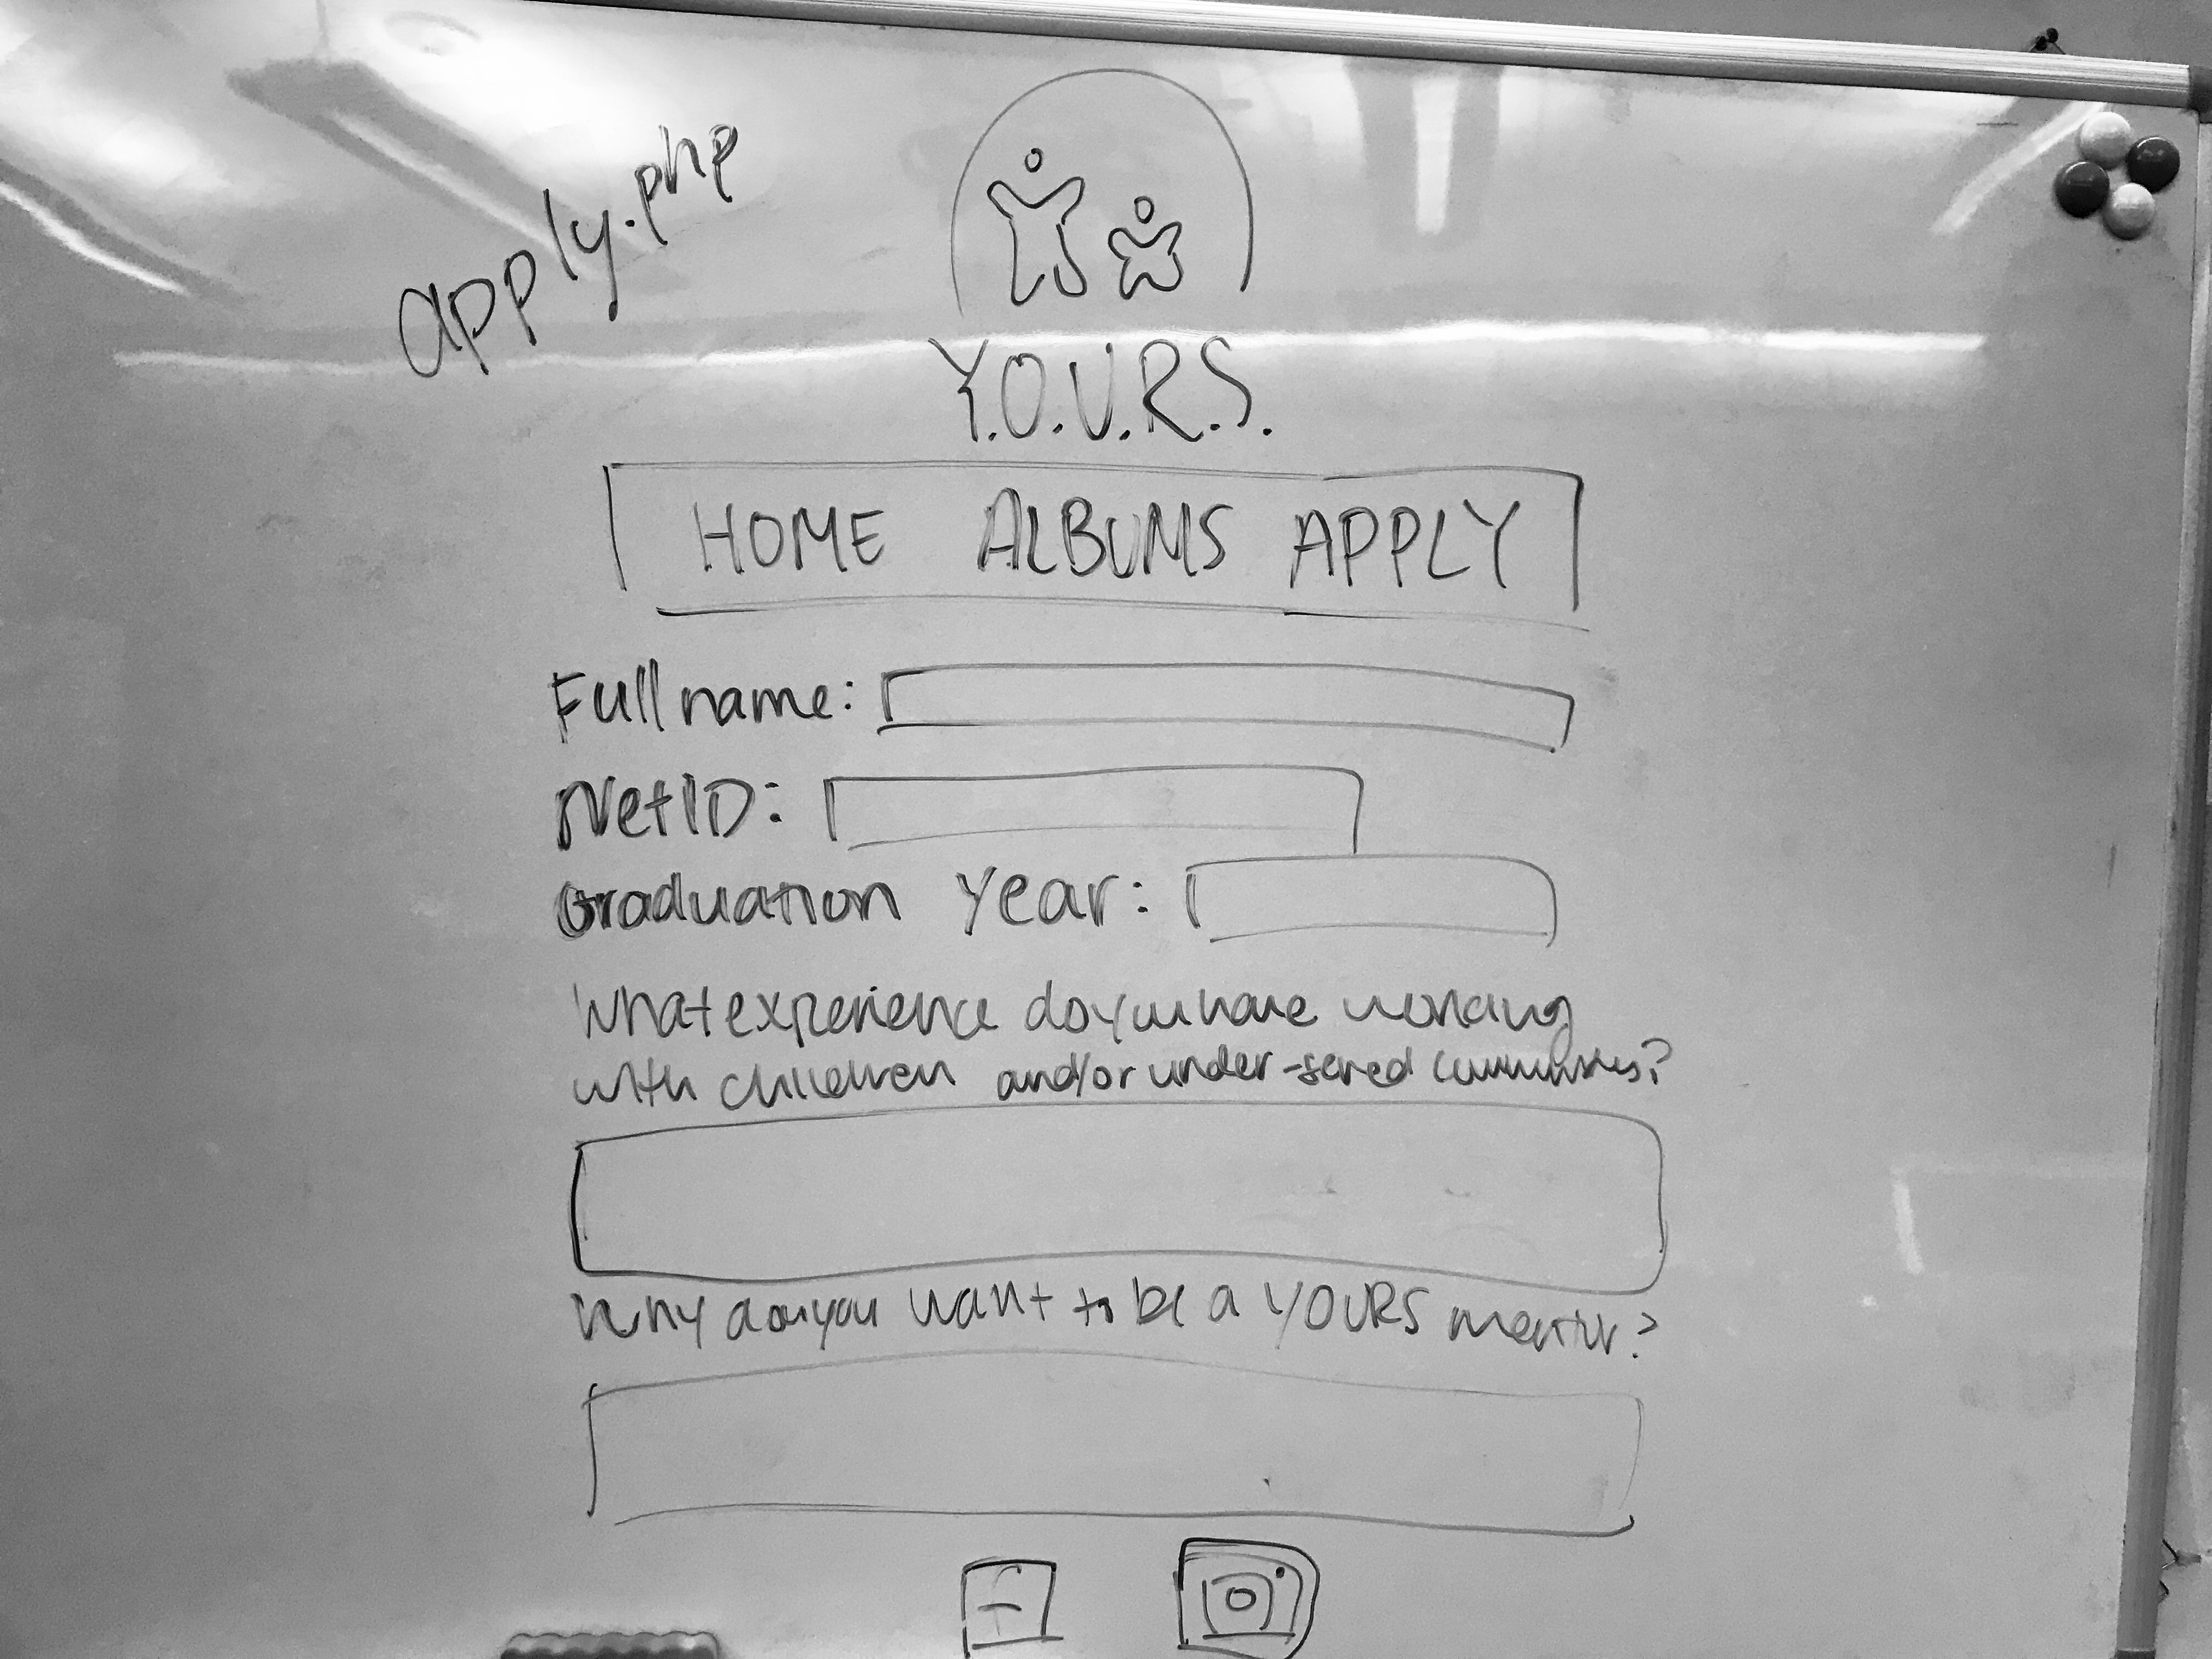 apply.php
Y.O.U.R.S.
HOME ALBUMS APPLY
Full name:
NetID:
Graduation Year:
What experience do you have working
with children and/or under-served communities?
Why do you want to be a YOURS mentor?